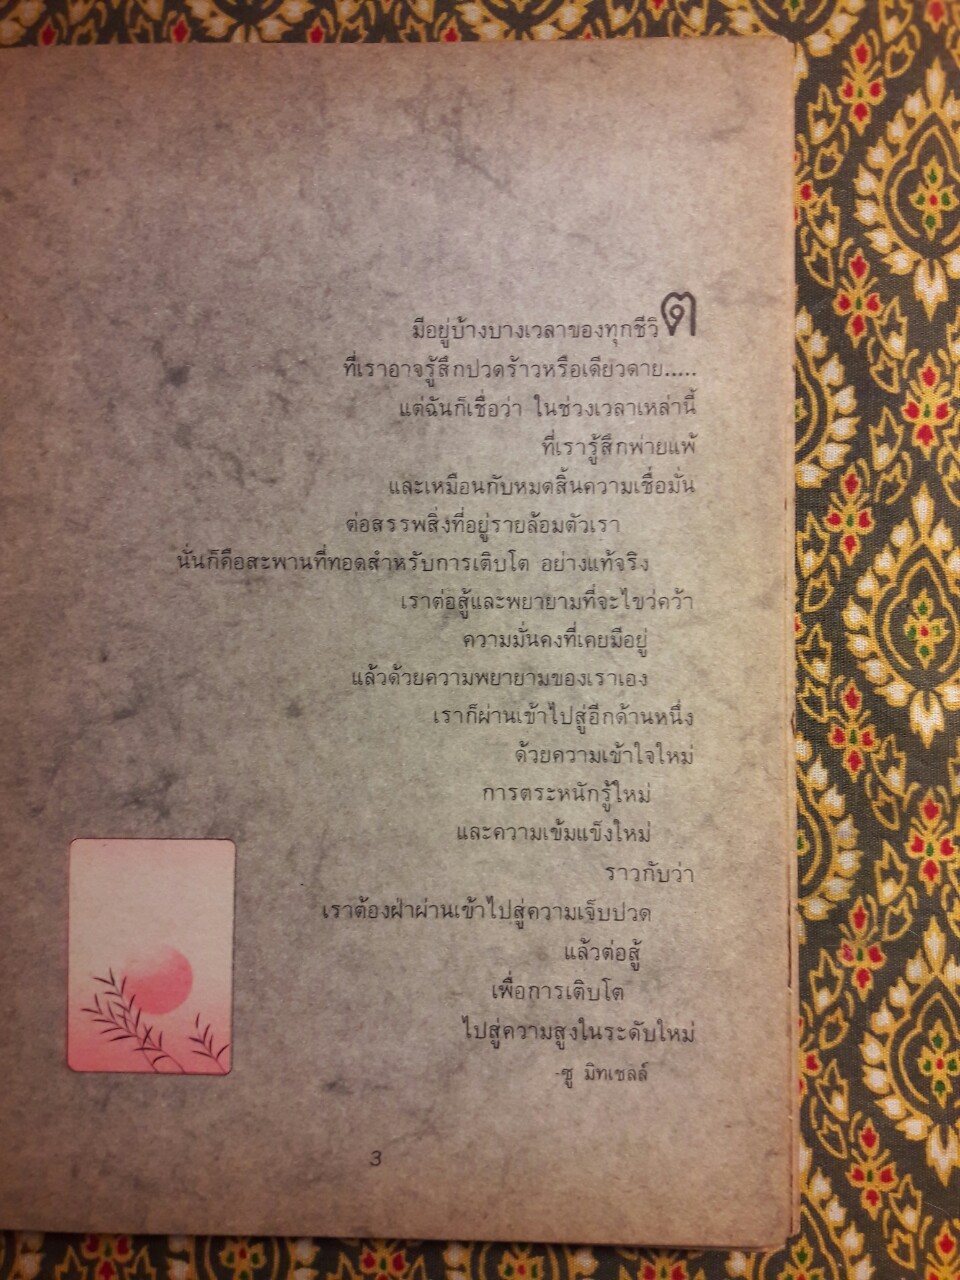 มีอยู่บ้างบางเวลาของทุกชีวิต
ที่เราอาจรู้สึกปวดร้าวหรือเดียวดาย.....
แต่ฉันก็เชื่อว่า ในช่วงเวลาเหล่านี้
ที่เรารู้สึกพ่ายแพ้
และเหมือนกับหมดสิ้นความเชื่อมั่น
ต่อสรรพสิ่งที่อยู่รายล้อมตัวเรา
นั่นก็คือสะพานที่ทอดสำหรับการเติบโต อย่างแท้จริง
เราต่อสู้และพยายามที่จะไขว่คว้า
ความมั่นคงที่เคยมีอยู่
แล้วด้วยความพยายามของเราเอง
เราก็ผ่านเข้าไปสู่อีกด้านหนึ่ง
ด้วยความเข้าใจใหม่
การตระหนักรู้ใหม่
และความเข้มแข็งใหม่
ราวกับว่า
เราต้องฝ่าผ่านเข้าไปสู่ความเจ็บปวด
แล้วต่อสู้
เพื่อการเติบโต
ไปสู่ความสูงในระดับใหม่
-ซู มิทเชลล์
3